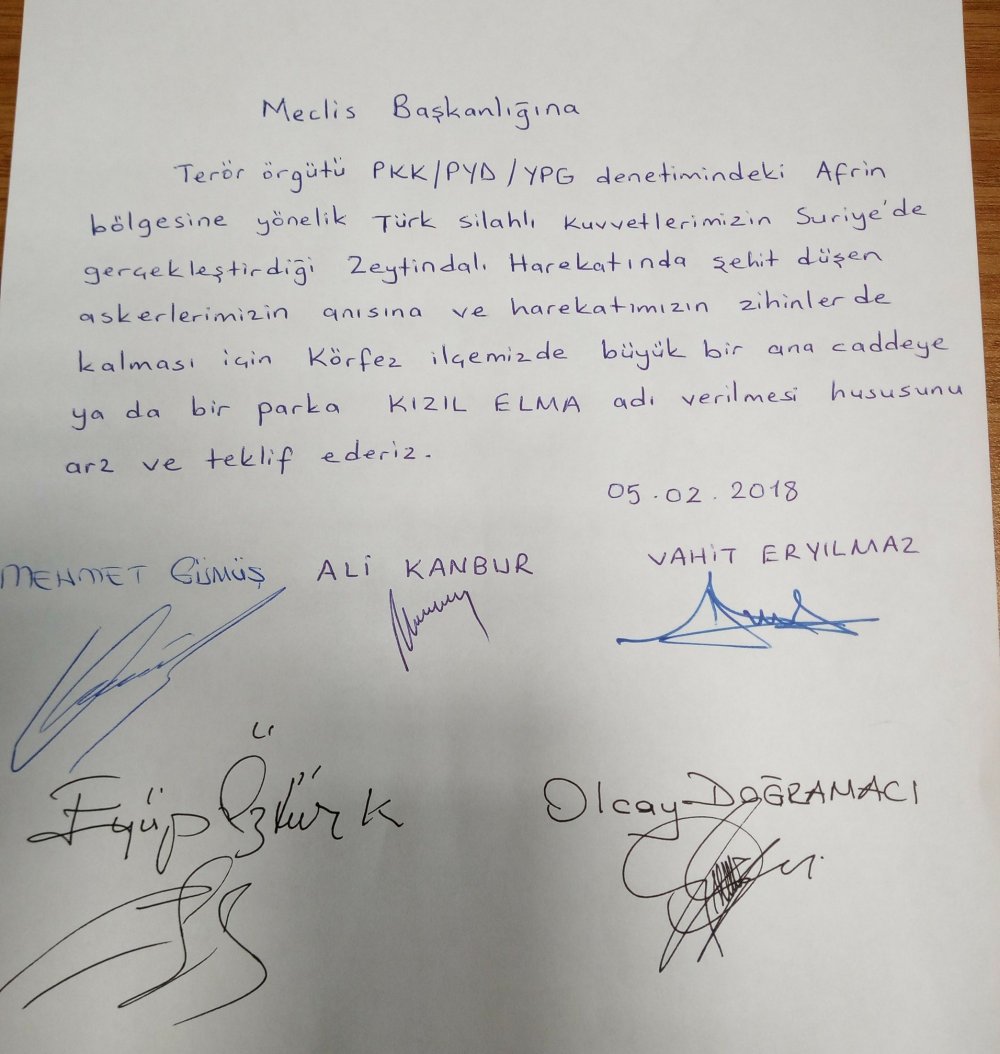 Meclis Başkanlığına
Terör örgütü PKK/PYD/YPG denetimindeki Afrin
bölgesine yönelik Türk silahlı kuvvetlerimizin Suriye'de
gerçekleştirdiği Zeytindalı Harekatında şehit düşen
askerlerimizin anısına ve harekatımızın zihinlerde
kalması için Körfez ilçemizde büyük bir ana caddeye
ya da bir parka KIZIL ELMA adı verilmesi hususunu
arz ve teklif ederiz.
05.02.2018
MEHMET GÜMÜŞ ALİ KANBUR VAHİT ERYILMAZ
Eyüp Öztürk Olcay DOĞRAMACI